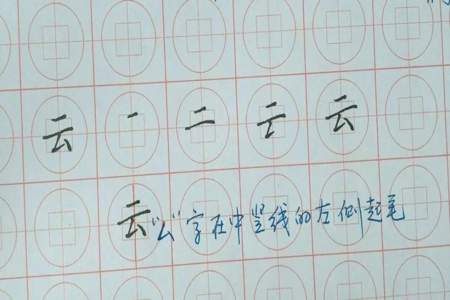 云 一 二 云 云
云"厶"字在中竖线的左侧起笔